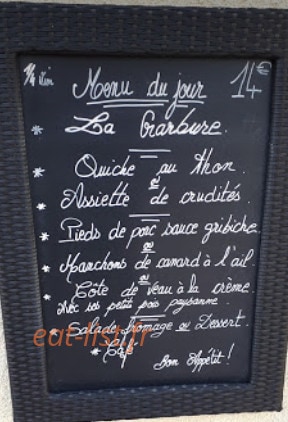 1/4 Vin
Menu du jour 14€
* La Garbure.
* Quiche au thon.
ou
* Assiette de crudités.
* Pieds de porc sauce gribiche
ou
* Manchons de canard à l'ail
ou
* Côte de veau à la crème.
Avec ses petits pois paysanne.
* Salade fromage ou Dessert.
* Café
Bon Appétit!
eat-list.fr